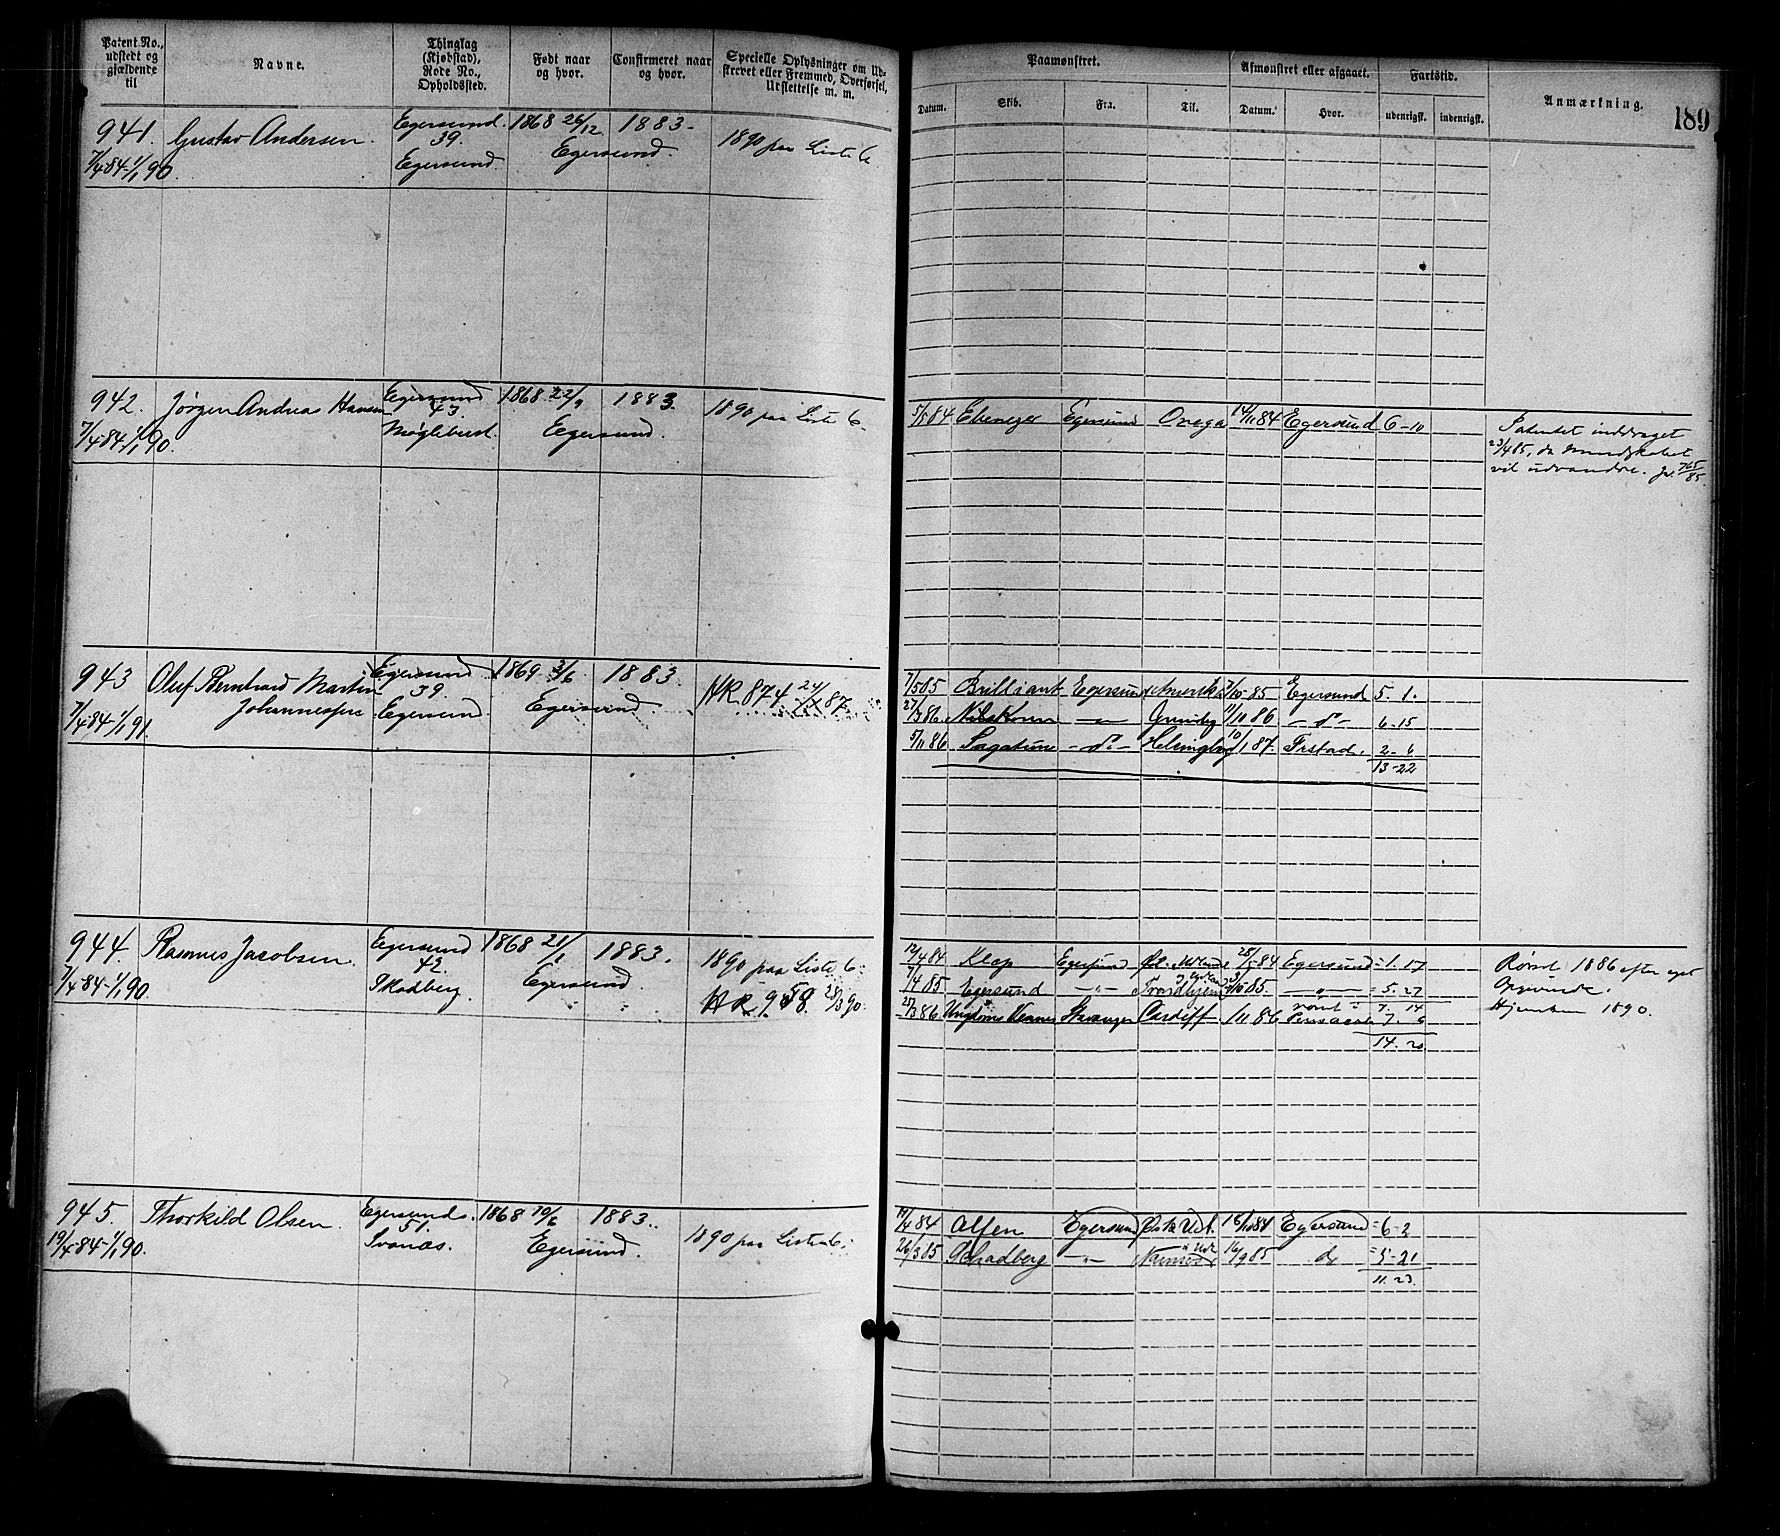 Patent No., udstedt og gjældende til
Navne.
Thinglag (Kjøbstad), Rode No., Opholdssted.
Født naar og hvor.
Confirmeret naar og hvor.
Specielle Oplysninger om Udskrevet eller Fremmed, Overførsel, Udslettelse m. m.
Paamønstret.
Afmønstret eller afgaaet.
Fartstid.
Anmærkning.
189
Datum. Skib. Fra. Til. Datum. Hvor. udenrigsk. indenrigsk.
941. Gustav Andersen. Egersund. 1868 26/12 1883-
39. Egersund. 1890 paa Liste 6
7/4 84-1/1 90. Egersund.
942. Jørgen Andreas Hansen Egersund 1868 22/9 1883. 1890 paa Liste 6-
43.
7/4 84-1/1 90. Møglebust. Egersund.
5/5 84 Ebenezer Egersund Onega 14/11 84 Egersund 6-10
Patentet inddraget
23/4 85, da Mandskabet
vil udvandre. Jr. 765/85.
943 Oluf Bernhard Martin Egersund 1869 3/6 1883. HR 874
39.
Johannessen Egersund Egersund
7/4 84-1/1 91.
7/5 85 Brilliant Egersund 7/10-85 Egersund 5. 1.
27/3 86 11/10 86 -do- 6.15
5/11 86 Sagatun -do- Helsingborg 10/1 87. Frstad. 2-6
13-22
944. Rasmus Jacobsen. Egersund 1868 21/1 1883. 1890 paa Liste 6:
42.
7/4 84-1/1 90. Skadberg. Egersund. HR 958. 28/3 90.
12/4 84 Klep Egersund 28/5 84 Egersund = 1.17
7/4 85 Egersund -"- Trondhjem 85 -"- = 5.27
7. 14
25/3 86 Stavanger Cardiff 1/11 86 Pensacola 7. 6
14. 20.
Rømt 1886 efter eget
Opgivende.
Hjemkom 1890.
945. Thorkild Olsen. Egersunds. 1868 19/6 1883. 1890 paa Liste 6:
51.
19/4-84-1/1 90. Svanæs. Egersund.
19/4 84 Alfen Egersund 18/10 84 Egersund = 6-2
26/3 85 Skadberg -"- 16/9 85 do = 5-21
11. 23.